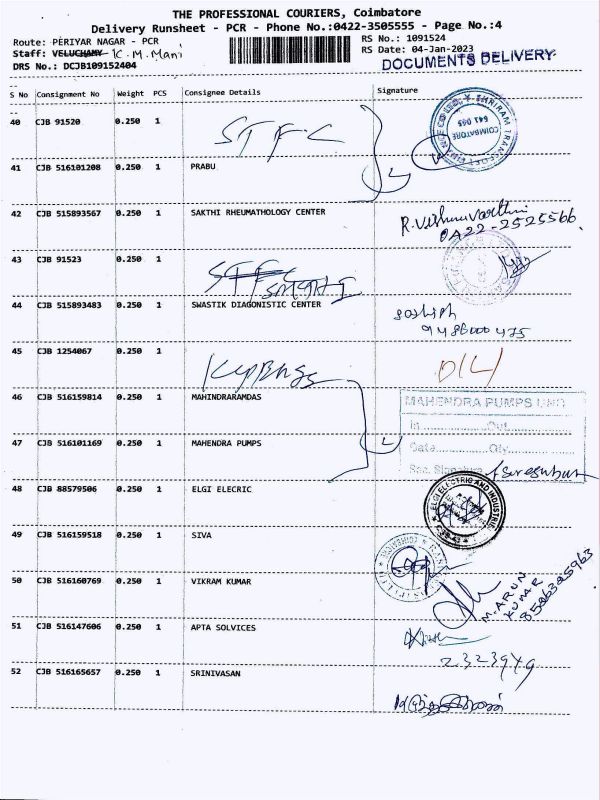 THE PROFESSIONAL COURIERS, Coimbatore
Delivery Runsheet - PCR - Phone No.:0422-3505555 - Page No.:4
Route: PERIYAR NAGAR - PCR
RS No.: 1091524
Staff: VELUCHAMY K. M. Mani
RS Date: 04-Jan-2023
DRS No.: DCJB109152404
DOCUMENTS DELIVERY
S No Consignment No Weight PCS Consignee Details Signature
40 CJB 91520 0.250 1 STFC
SHRIRAM TRANSPORT COIMBATORE 641 065
41 CJB 516101208 0.250 1 PRABU
42 CJB 515893567 0.250 1 SAKTHI RHEUMATHOLOGY CENTER
0422-2525566
43 CJB 91523 0.250 1 STFC
44 CJB 515893483 0.250 1 SWASTIK DIAGONISTIC CENTER
9486000475
45 CJB 1254067 0.250 1
46 CJB 516159814 0.250 1 MAHINDRARAMDAS
MAHENDRA PUMPS
In Out
47 CJB 516101169 0.250 1 MAHENDRA PUMPS
Date Qty
Sec. Signature
48 CJB 88579506 0.250 1 ELGI ELECRIC
ELGI ELECTRIC AND INDUSTRIE
49 CJB 516159518 0.250 1 SIVA
50 CJB 516160769 0.250 1 VIKRAM KUMAR
M. ARUN
KUMAR
51 CJB 516147606 0.250 1 APTA SOLVICES
2323949
52 CJB 516165657 0.250 1 SRINIVASAN